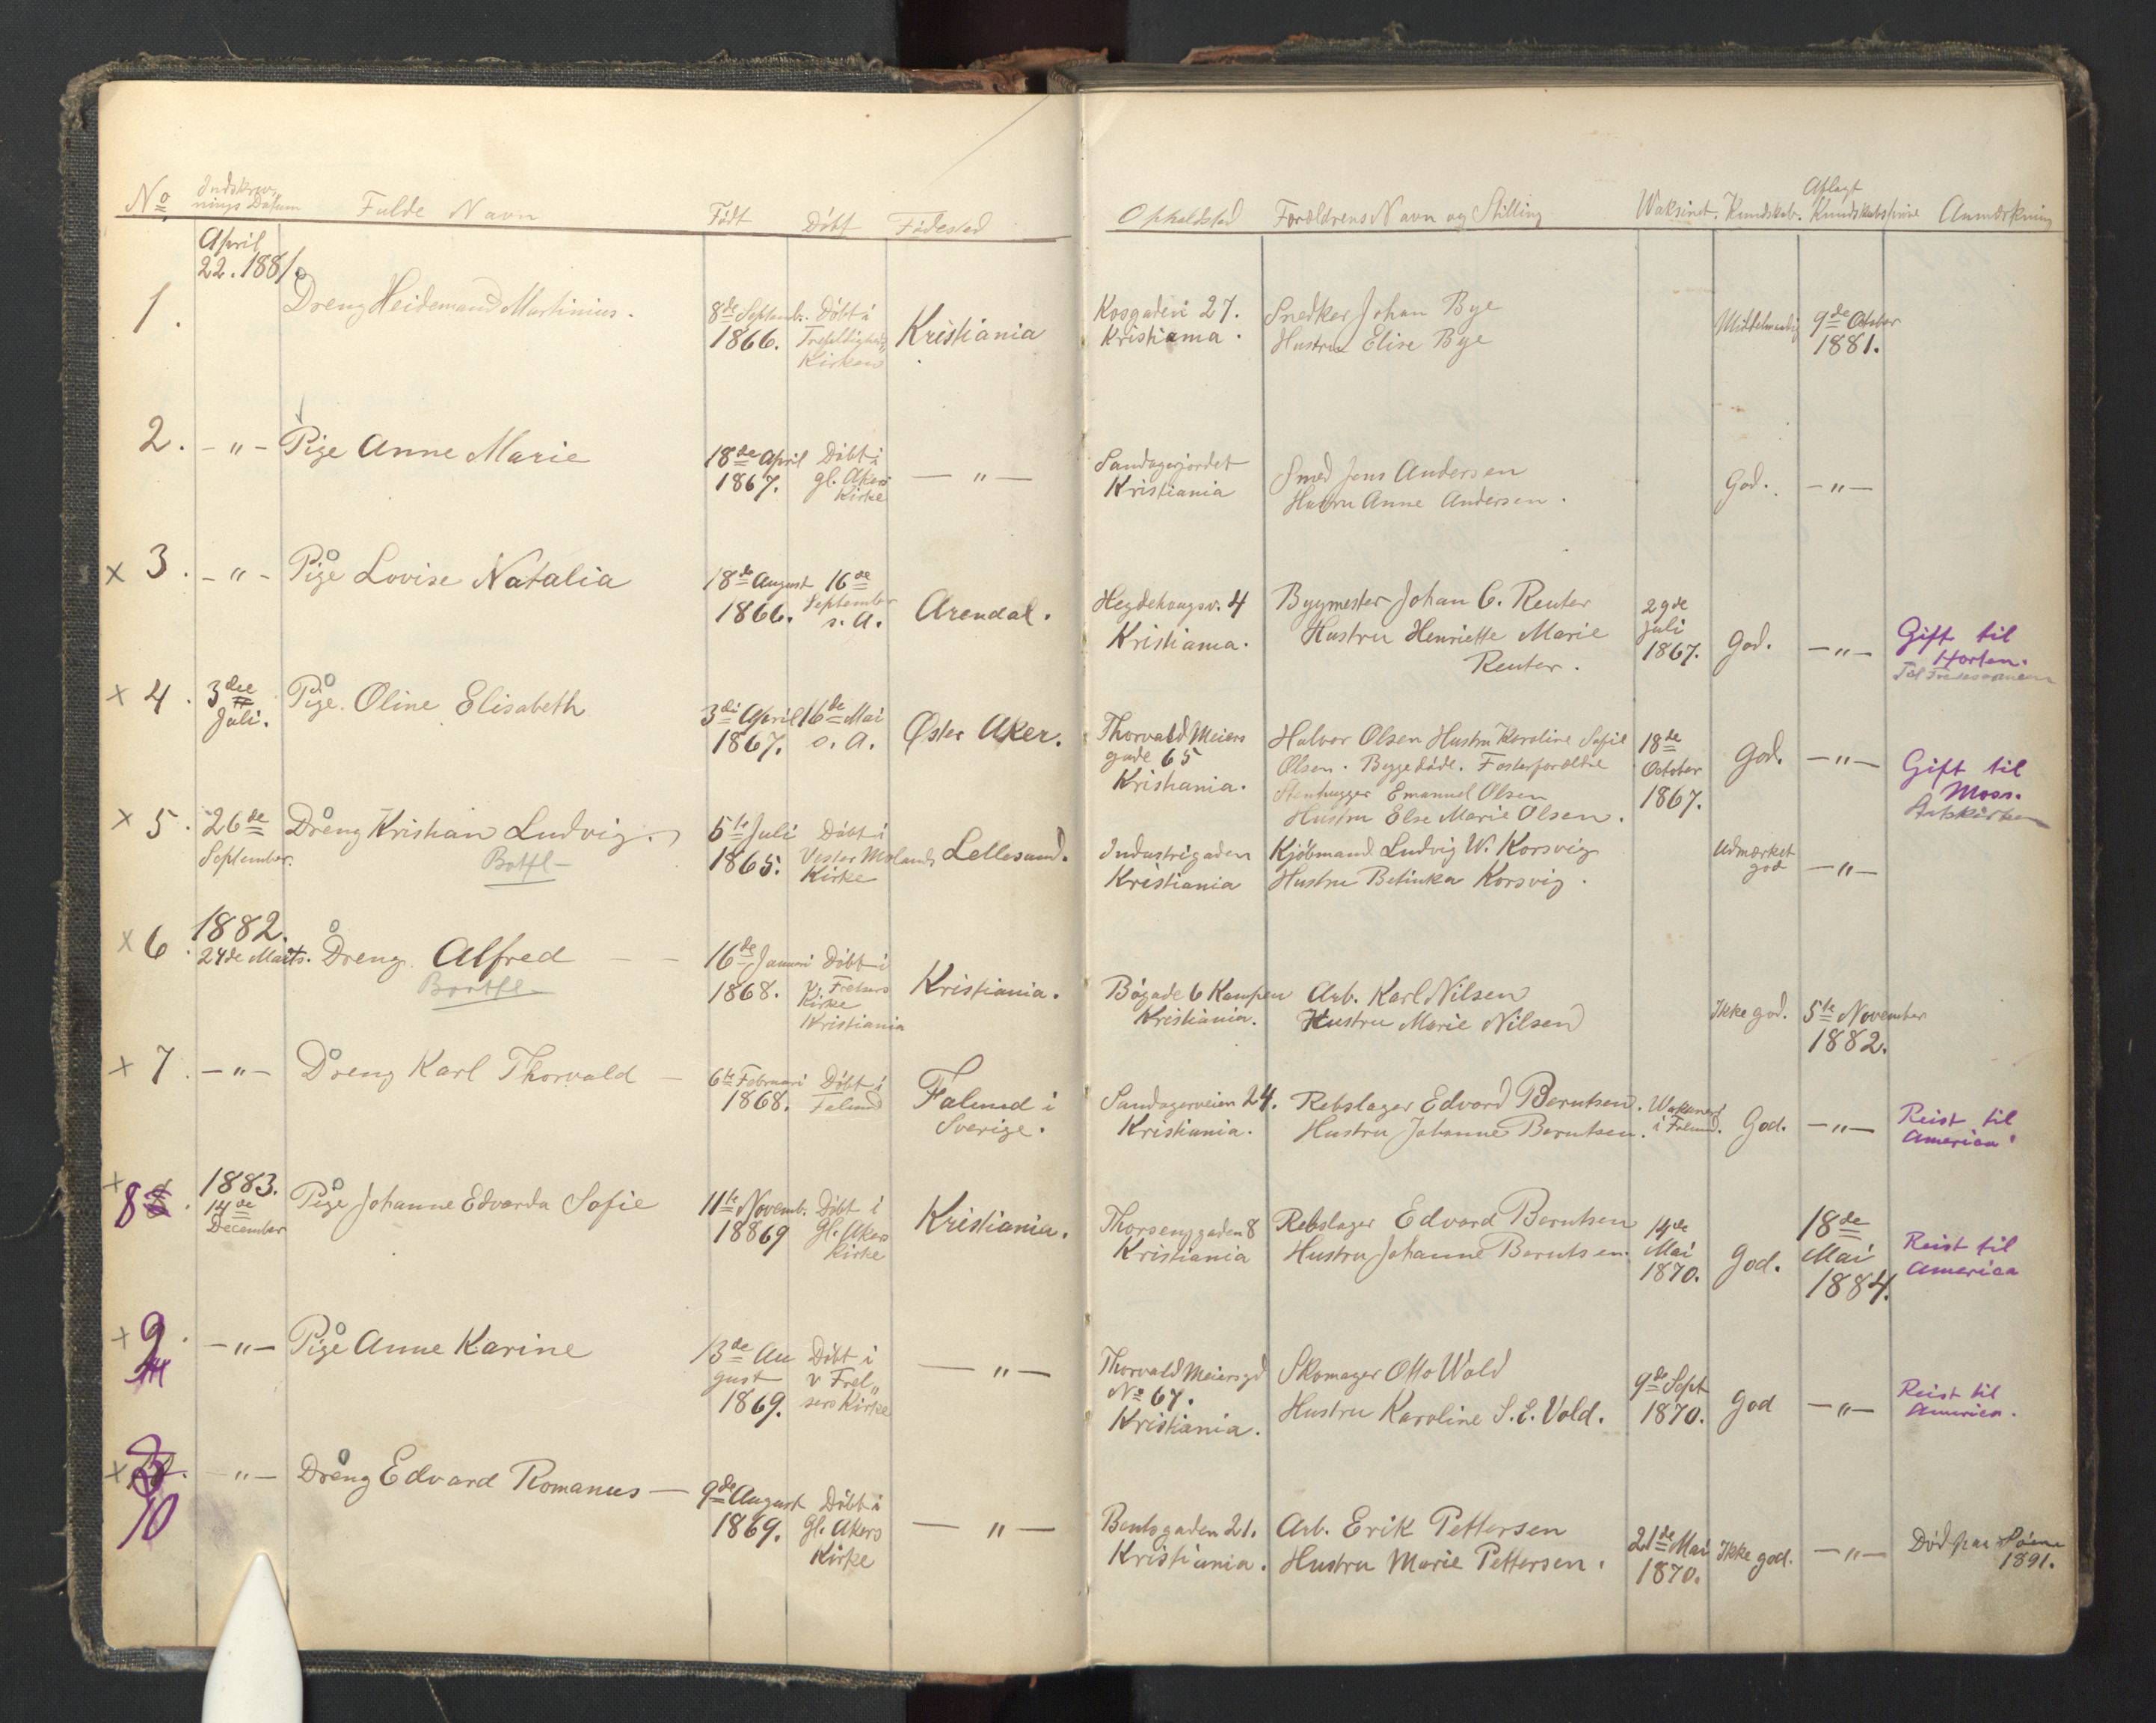 No Indskriv„ Fulde Navn Født Döbt Fødested
nings Datum
April
22. 1881
1. Dreng Heidemand Martinius. 8de Septemb. Döbt i Kristiania
1866. Trefoldigheds„
Kirken
2. — „ — Pige Anne Marie 18de April Döbt i — „ —
1867. gl. Akers
Kirke
x 3. — „ — Pige Lovise Natalia 18de August 16de Arendal.
1866. September
s. A.
x 4. 3die Pige. Oline Elisabeth 3di April 16de Mai Øster Aker.
Juli. 1867. s. A.
x 5. 26de Dreng Kristian Ludvig. 5te Juli Döbt i Lellesund.
September. 1865. Vester Molands
Kirke
1882.
x 6. 24de Marts. Dreng Alfred — — 16de Januari Döbt i Kristiania.
1868. V. Frelsers
Kirke
Kristiania
x 7. — „ — Dreng Karl Thorvald — 6te Februari Döbt i Falund i
1868. Falund Sverige.
1883.
x 8. 14de Pige Johanne Edvarda Sofie 11te Novemb. Döbt i Kristiania.
December 18869 Gl. Akers
Kirke
x 9. — „ — Pige Anne Karine 13de Au Döbt i — „ —
gust v Frel„
1869. sers Kirke
x 10 — „ — Dreng Edvard Romanus — 9de August Döbt i — „ —
1869. Gl. Akers
Kirke
Opholdsted Forældrens Navn og Stilling Waksinet. Kundskab. Aflagt Anmærkning
Kundskabsprøve
27. Snedker Johan Bye 9de October
Kristiania. Hustru Elise Bye 1881.
Sandagerjordet Smed Jens Andersen God. — „ —
Kristiania Hustru Anne Andersen.
Hegdehaugsv. 4 Bygmester Johan C. Reuter 29de
Kristiania. Hustru Henriette Marie Juli God. — „ — Gift til
Reuter. 1867. Horten.
Thorvald Meiers Halvor Olsen Hustru Karoline Sofie 18de God. — „ — Gift til
gade 65 Olsen. Begge döde. Fosterforældre October Moss.
Kristiania. Stenhugger Emanuel Olsen 1867.
Hustru Else Marie Olsen.
Industrigaden Kjöbmand Ludvig W. Korsvig Udmærket
Kristiania Hustru Betinka Korsvig. god — „ —
Bögade 6 Kampen Arb. Karl Nilsen Ikke god. 5te November
Kristiania. Hustru Marie Nilsen 1882.
Sandagerveien 24. Rebslager Edvard Berntsen. God. — „ — Reist til
Kristiania. Hustru Johanne Berntsen. i Falund. America.
Thorsenggaden 8 Rebslager Edvard Berntsen 14de 18de Reist til
Kristiania Hustru Johanne Berntsen. Mai God. Mai America
1870. 1884.
Thorvald Meiersgd Skomager Otto Wold 9de Sept God — „ — Reist til
No 67. Hustru Karoline S. E. Vold. 1870. America.
Kristiania.
Bentsgaden 21. Arb. Erik Pettersen 21de Mai Ikke god. — „ — Död paa
Kristiania. Hustru Marie Pettersen. 1870. 1891.